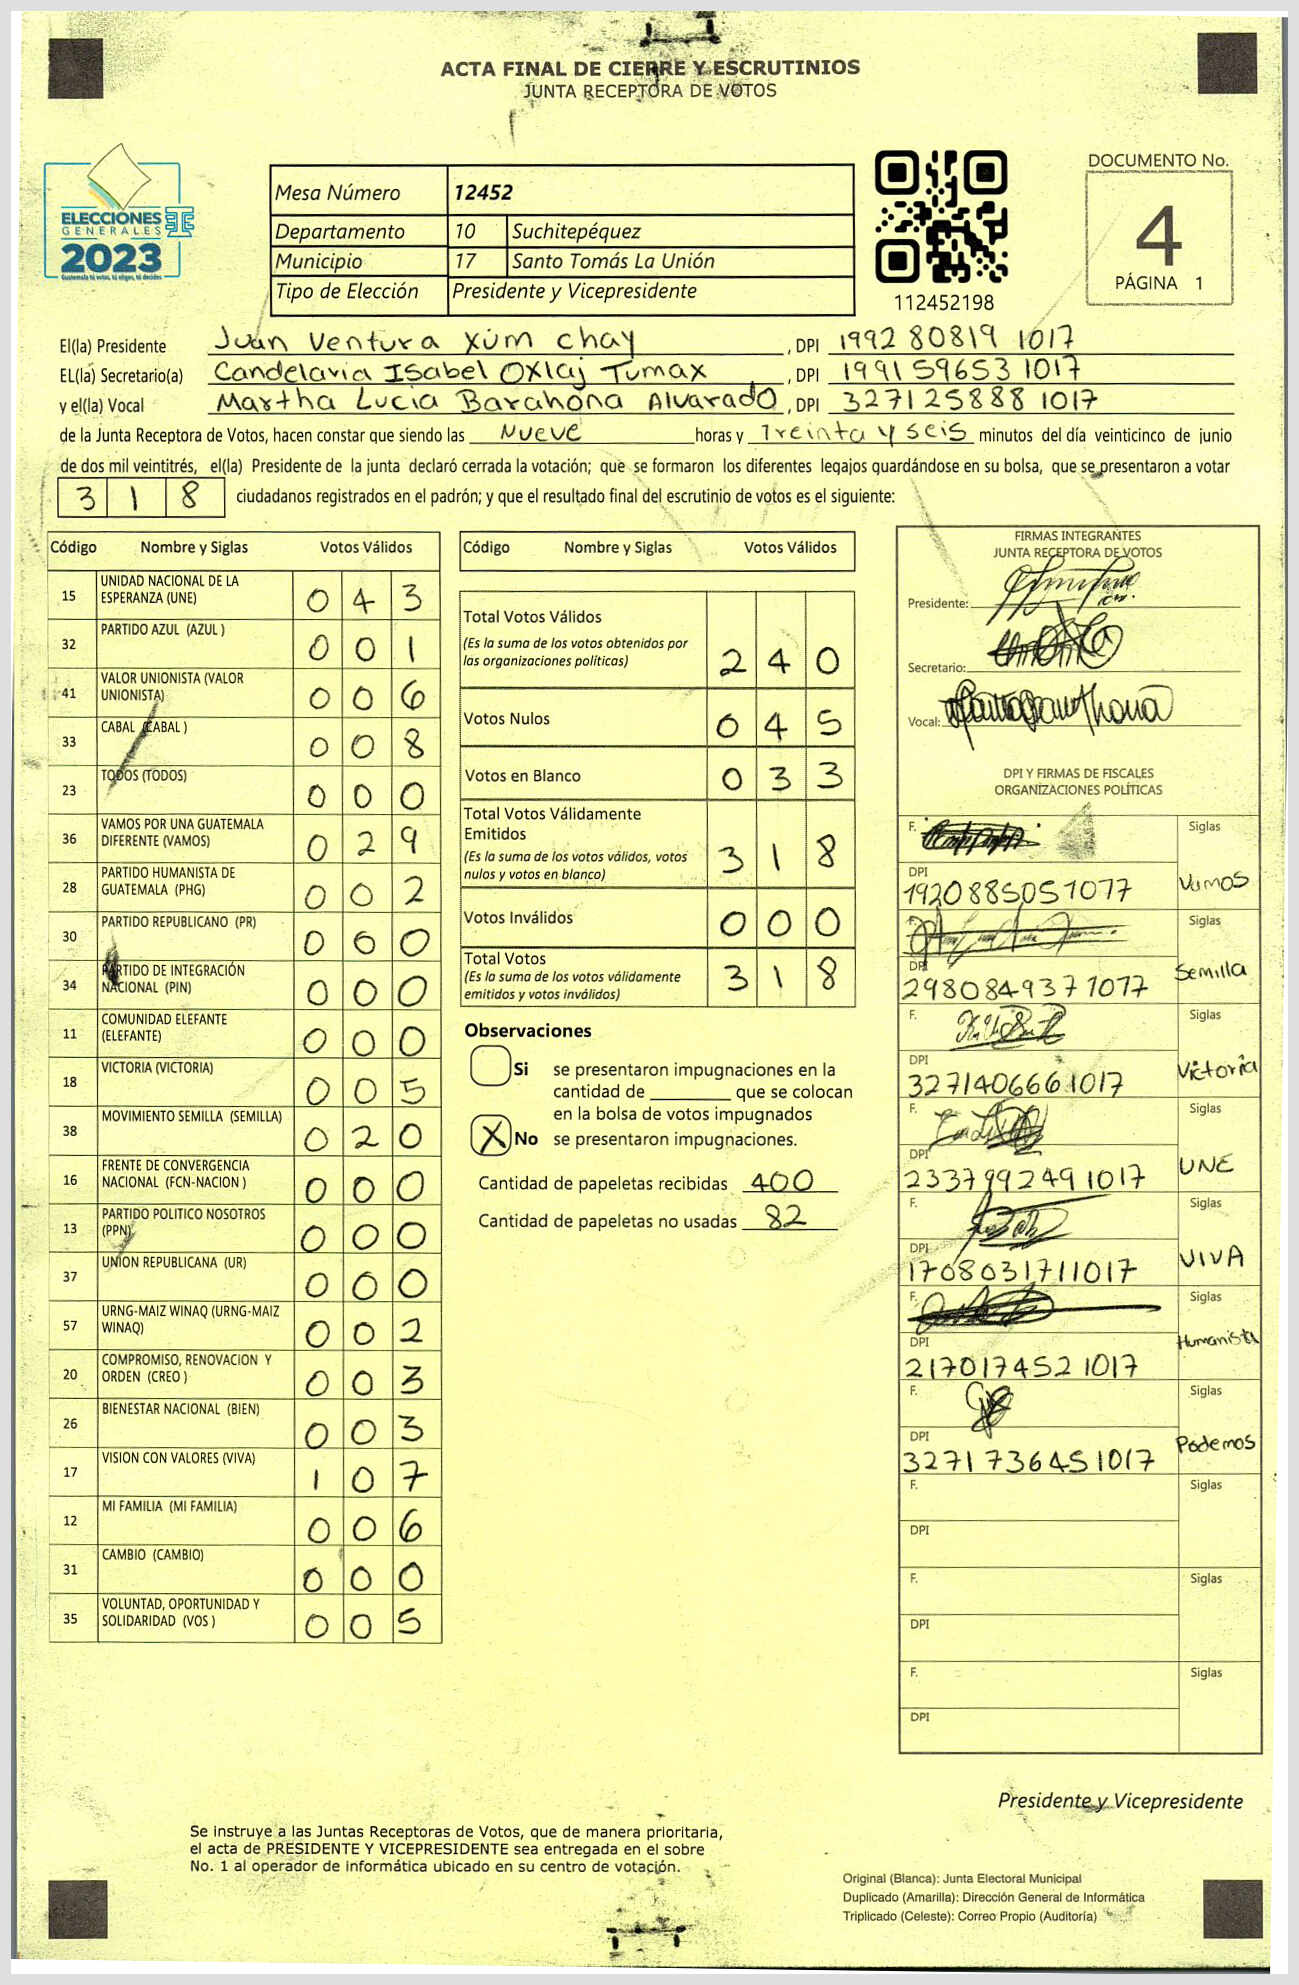 ACTA FINAL DE CIERRE Y ESCRUTINIOS
JUNTA RECEPTORA DE VOTOS
ELECCIONES
GENERALES
2023
Guatemala tú votas, tú eliges, tú decides
Mesa Número 12452
Departamento 10 Suchitepéquez
Municipio 17 Santo Tomás La Unión
Tipo de Elección Presidente y Vicepresidente
112452198
DOCUMENTO No.
4
PÁGINA 1
El(la) Presidente Juan Ventura Xúm Chay, DPI 1992 80819 1017
EL(la) Secretario(a) Candelaria Isabel Oxlaj Tumax, DPI 1991 59653 1017
y el(la) Vocal Martha Lucia Barahona Alvarado, DPI 3271 25888 1017
de la Junta Receptora de Votos, hacen constar que siendo las Nueve horas y Treinta y seis minutos del día veinticinco de junio
de dos mil veintitrés, el(la) Presidente de la junta declaró cerrada la votación; que se formaron los diferentes legajos guardándose en su bolsa, que se presentaron a votar
3 1 8 ciudadanos registrados en el padrón; y que el resultado final del escrutinio de votos es el siguiente:
Código Nombre y Siglas Votos Válidos
15 UNIDAD NACIONAL DE LA ESPERANZA (UNE) 0 4 3
32 PARTIDO AZUL (AZUL ) 0 0 1
41 VALOR UNIONISTA (VALOR UNIONISTA) 0 0 6
33 CABAL (CABAL ) 0 0 8
23 TODOS (TODOS) 0 0 0
36 VAMOS POR UNA GUATEMALA DIFERENTE (VAMOS) 0 2 9
28 PARTIDO HUMANISTA DE GUATEMALA (PHG) 0 0 2
30 PARTIDO REPUBLICANO (PR) 0 6 0
34 PARTIDO DE INTEGRACIÓN NACIONAL (PIN) 0 0 0
11 COMUNIDAD ELEFANTE (ELEFANTE) 0 0 0
18 VICTORIA (VICTORIA) 0 0 5
38 MOVIMIENTO SEMILLA (SEMILLA) 0 2 0
16 FRENTE DE CONVERGENCIA NACIONAL (FCN-NACION ) 0 0 0
13 PARTIDO POLITICO NOSOTROS (PPN) 0 0 0
37 UNION REPUBLICANA (UR) 0 0 0
57 URNG-MAIZ WINAQ (URNG-MAIZ WINAQ) 0 0 2
20 COMPROMISO, RENOVACION Y ORDEN (CREO ) 0 0 3
26 BIENESTAR NACIONAL (BIEN) 0 0 3
17 VISION CON VALORES (VIVA) 1 0 7
12 MI FAMILIA (MI FAMILIA) 0 0 6
31 CAMBIO (CAMBIO) 0 0 0
35 VOLUNTAD, OPORTUNIDAD Y SOLIDARIDAD (VOS ) 0 0 5
Código Nombre y Siglas Votos Válidos
Total Votos Válidos
(Es la suma de los votos obtenidos por
las organizaciones politicas) 2 4 0
Votos Nulos 0 4 5
Votos en Blanco 0 3 3
Total Votos Válidamente
Emitidos
(Es la suma de los votos válidos, votos
nulos y votos en blanco) 3 1 8
Votos Inválidos 0 0 0
Total Votos
(Es la suma de los votos válidamente
emitidos y votos inválidos) 3 1 8
Observaciones
Si se presentaron impugnaciones en la
cantidad de ________ que se colocan
en la bolsa de votos impugnados
X No se presentaron impugnaciones.
Cantidad de papeletas recibidas 400
Cantidad de papeletas no usadas 82
FIRMAS INTEGRANTES
JUNTA RECEPTORA DE VOTOS
Presidente:
Secretario:
Vocal:
DPI Y FIRMAS DE FISCALES
ORGANIZACIONES POLÍTICAS
F. Siglas
DPI
1920885051077 Vamos
F. Siglas
DPI
2980849371017 Semilla
F. Siglas
DPI
3271406661017 Victoria
F. Siglas
DPI
2337992491017 UNE
F. Siglas
DPI
1708031711017 VIVA
F. Siglas
DPI
2170174521017 Humanista
F. Siglas
DPI
3271736451017 Podemos
F. Siglas
DPI
F. Siglas
DPI
F. Siglas
DPI
Presidente y Vicepresidente
Se instruye a las Juntas Receptoras de Votos, que de manera prioritaria,
el acta de PRESIDENTE Y VICEPRESIDENTE sea entregada en el sobre
No. 1 al operador de informática ubicado en su centro de votación.
Original (Blanca): Junta Electoral Municipal
Duplicado (Amarilla): Dirección General de Informática
Triplicado (Celeste): Correo Propio (Auditoría)